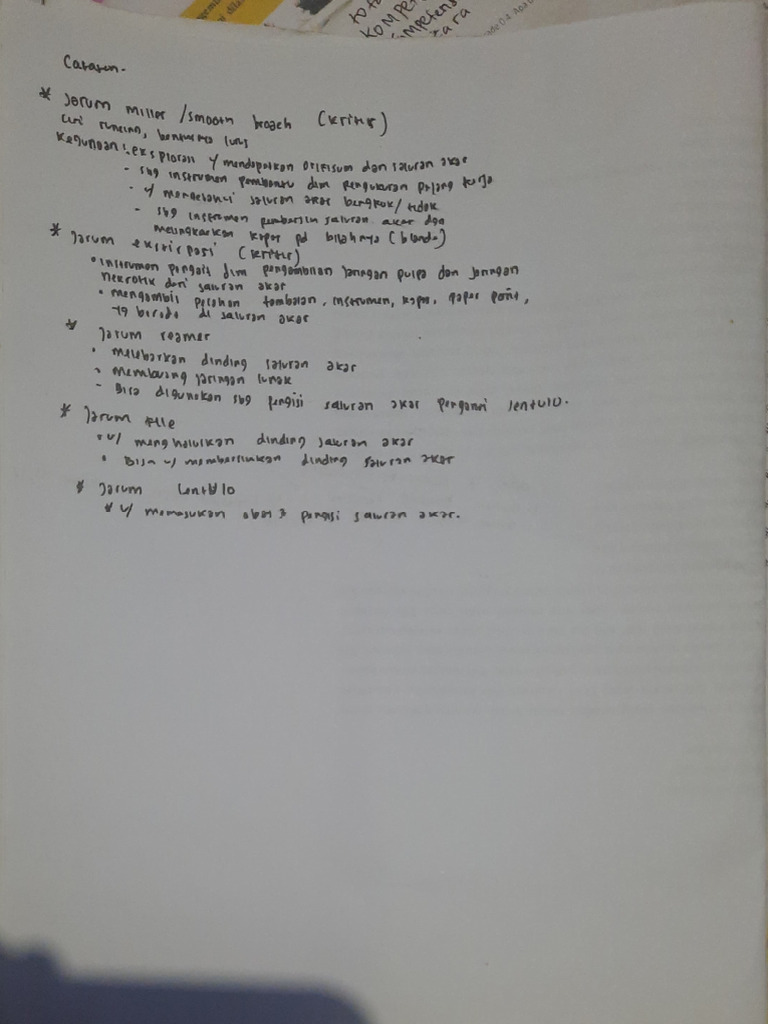 tota
kompet
kompetens
tara
Catatan.
* Jarum miller /smooth broach (kritis)
Ciri runcing, bentuknya lurus
Kegunaan : eksplorasi u/ mendapatkan orifisum dan saluran akar
- sbg instrumen pembantu dlm pengukuran pnjang kerja
- u/ mengetahui saluran akar bengkok/ tidak
- sbg instrumen pembersih saluran akar dgn
melingkarkan kapas pd bilahnya (blade)
* Jarum ekstirpasi (kritis)
• Instrumen pengait dlm pengambilan jaringan pulpa dan jaringan
nekrotik dari saluran akar
• mengambil patahan tambalan, instrumen, kapas, paper point,
yg berada di saluran akar
* Jarum reamer
• melebarkan dinding saluran akar
• membuang jaringan lunak
- Bisa digunakan sbg pengisi saluran akar pengganti lentulo.
* Jarum file
• u/ menghaluskan dinding saluran akar
• Bisa u/ membersihkan dinding saluran akar
* Jarum lentulo
* u/ memasukan obat2 pengisi saluran akar.